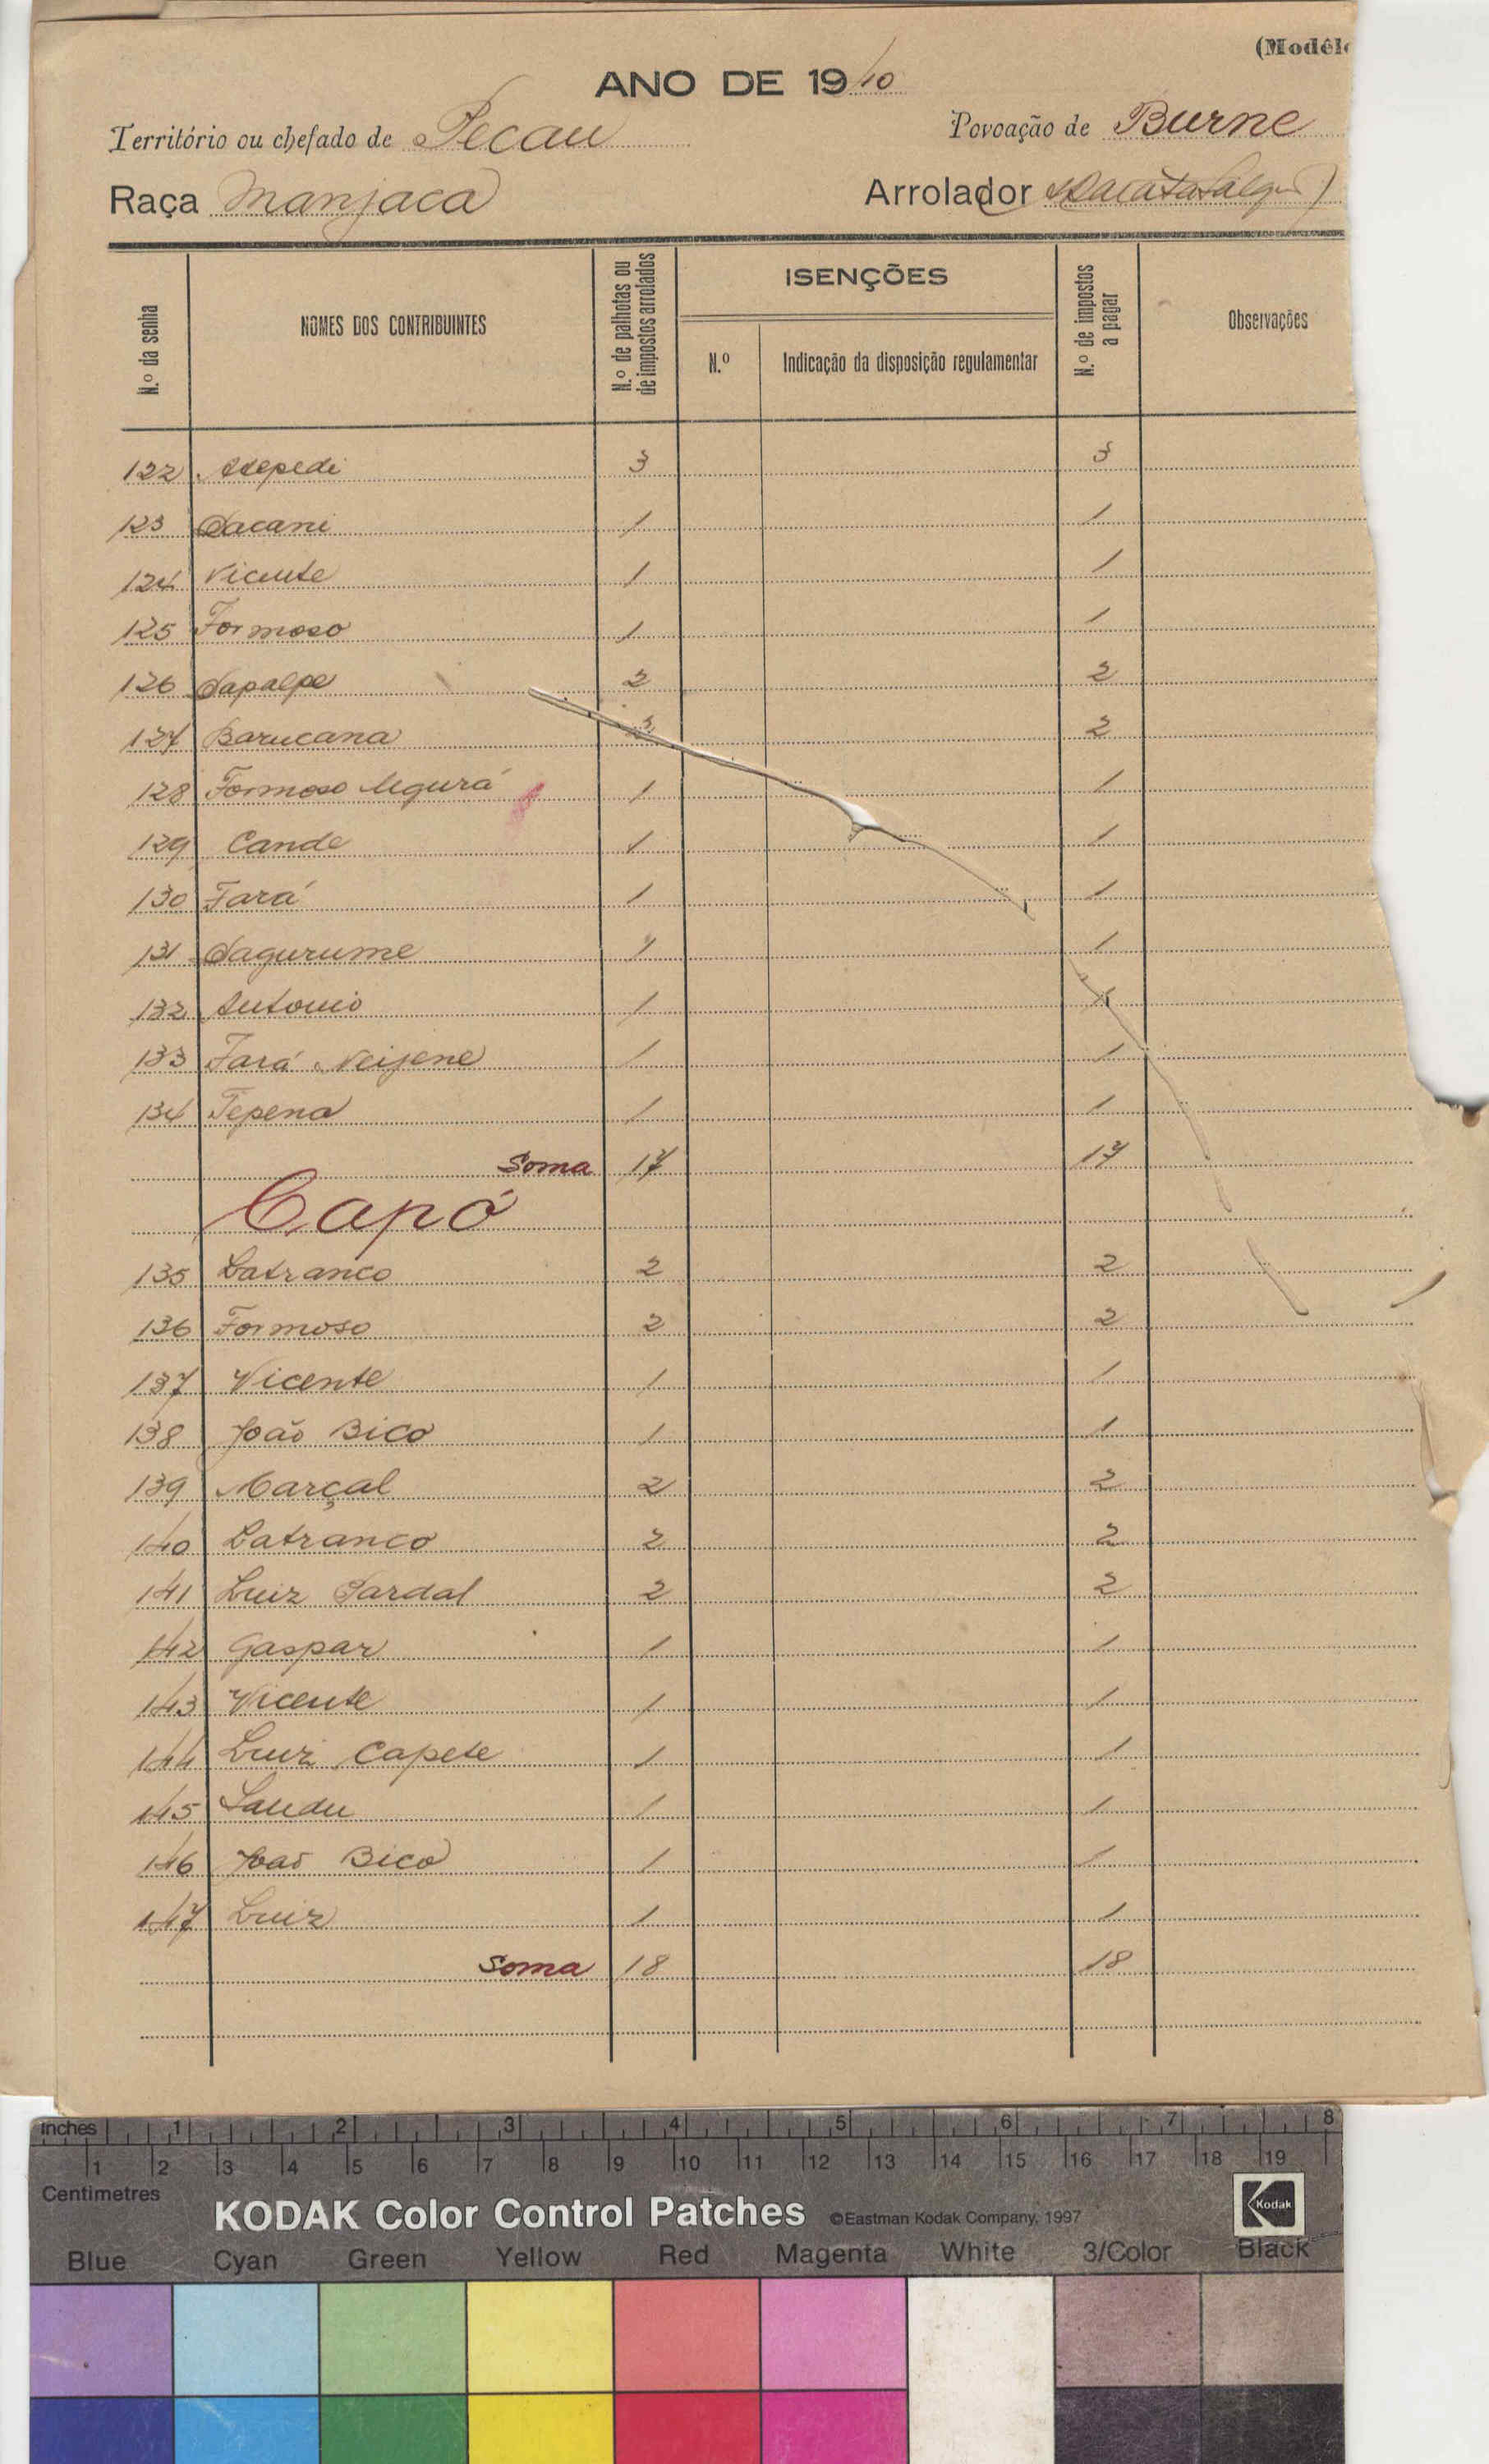 (Modêlo
ANO DE 1940
Território ou chefado de Pecau Povoação de Burne
Raça Manjaca Arrolador
N.º da senha NOMES DOS CONTRIBUINTES N.º de palhotas ou de impostos arrolados ISENÇÕES N.º de impostos a pagar Observações
N.º Indicação da disposição regulamentar
122 3 3
123 Dacani 1 1
124 Vicente 1 1
125 Formoso 1 1
126 Dapalpe 2 2
127 Barucana 2 2
128 Formoso Ugurá 1 1
129 Cande 1 1
130 Fará 1 1
131 Dagurume 1 1
132 Antonio 1 1
133 Fará Neijene 1 1
134 Tepena 1 1
Soma 17 17
Capó
135 Batranco 2 2
136 Formoso 2 2
137 Vicente 1 1
138 João Bico 1 1
139 Marçal 2 2
140 Batranco 2 2
141 Luiz Pardal 2 2
142 Gaspar 1 1
143 Vicente 1 1
144 Luiz Capete 1 1
145 Landu 1 1
146 João Bico 1 1
147 Luiz 1 1
Soma 18 18
Inches 1 2 3 4 5 6 7 8
1 2 3 4 5 6 7 8 9 10 11 12 13 14 15 16 17 18 19
Centimetres
KODAK Color Control Patches ©Eastman Kodak Company, 1997 Kodak
Blue Cyan Green Yellow Red Magenta White 3/Color Black